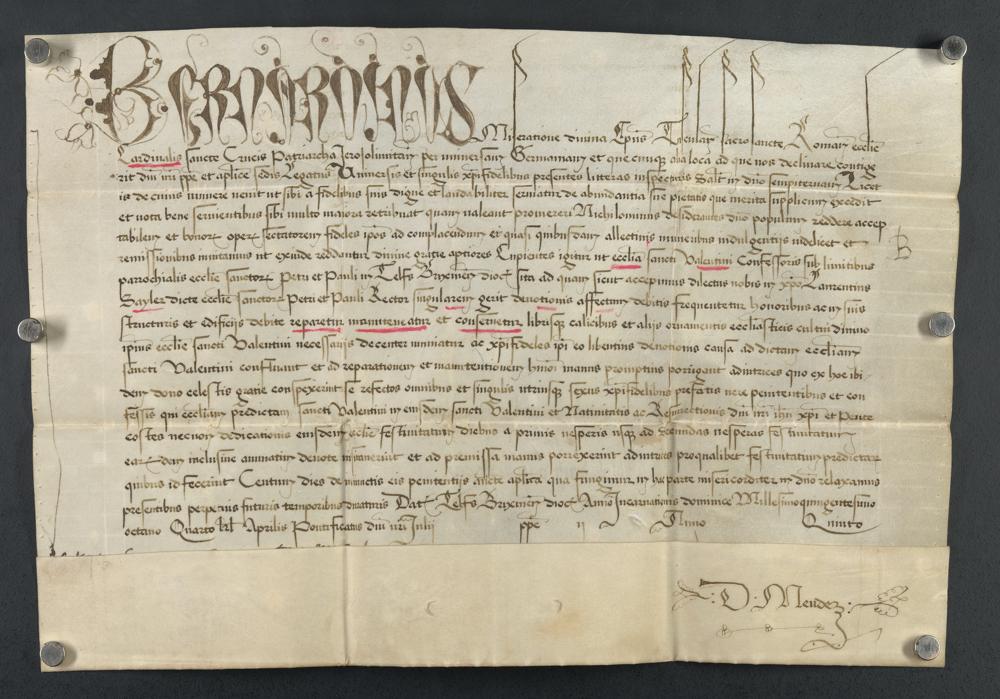 BERNARDINUS Miseratione divina Ep̃us Tusculañ sacrosancte Romane eccl̃ie
Cardinalis sancte Crucis Patriarcha Jerosolimitañ per universam Germaniam et que cunq̃ alia loca ad que nos declinare contige
rit dñi nr̃i pp̃e et ap̃lice sedis Legatus Universis et singulis xp̃ifidelibus presentes litteras inspecturis Salt̃ in dño sempiternam Licet
is de cuius munere venit ut sibi a fidelibus suis digne et laudabiliter serviatur de abundantia sue pietatis que merita supplicum excedit
et vota bene servientibus sibi multo maiora retribuat quam valeant promereri Nichilominus desiderantes dño populum reddere accep
tabilem et bonoꝝ operꝫ sectatorem fideles ip̃os ad complacendum et quasi quibusdam allectivis muneribus indulgentiis videlicet et
remissionibus invitamus ut exinde reddantur divine gratie aptiores Cupientes igitur ut eccl̃ia sancti Valentini Confessoris sub limitibus
parrochialis eccl̃ie sanctoꝝ Petri et Pauli in Telfs Brixineñ dioc̃ sita ad quam sicut accepimus dilectus nobis in xp̃o Laurentius
Sayler dicte eccl̃ie sanctoꝝ Petri et Pauli Rector singularem gerit devotionis affectum debitis frequentetur honoribus ac in suis
structuris et edificijs debite reparetur manuteneatur et conservetur librisq̃ calicibus et alijs ornamentis ecclesiasticis cultui divino
ipius eccl̃ie sancti Valentini necessarijs decenter muniatur ac xp̃ifideles ip̃i eo libentius devotionis causa ad dictam eccl̃iam
sancti Valentini confluant et ad reparationem et manutentionem hmõi manus promptius porrigant adiutrices quo ex hoc ibi
dem dono celestis gratie conspexerint se refectos omnibus et singulis utriusq̃ sexus xp̃ifidelibus prefatis vere penitentibus et con
fessis qui eccl̃iam predictam sancti Valentini in eiusdem sancti Valentini et Nativitatis ac Resurrectionis dñi nr̃i ih̃u xp̃i et Pente
costes necnon dedicationis eiusdem eccl̃ie festivitatum diebus a primis vesperis usq̃ ad secundas vesperas festivitatum
earꝝdem inclusive annuatim devote visitaverint et ad premissa manus porrexerint adiutrices pro qualibet festivitatum predictaꝝ
quibus id fecerint Centum dies de iniunctis eis penitentijs aucte ap̃lica qua fungimur in hac parte misericorditer in dño relaxamus
presentibus perpetuis futuris temporibus duraturis Dat̃ Telfs Brixineñ dioc̃ Anno Incarnationis dominice Millesimoquingentesimo
octavo Quarto kl̃ Aprilis Pontificatus dñi nr̃i Julii pp̃e ii Anno Quinto
D. Mendez